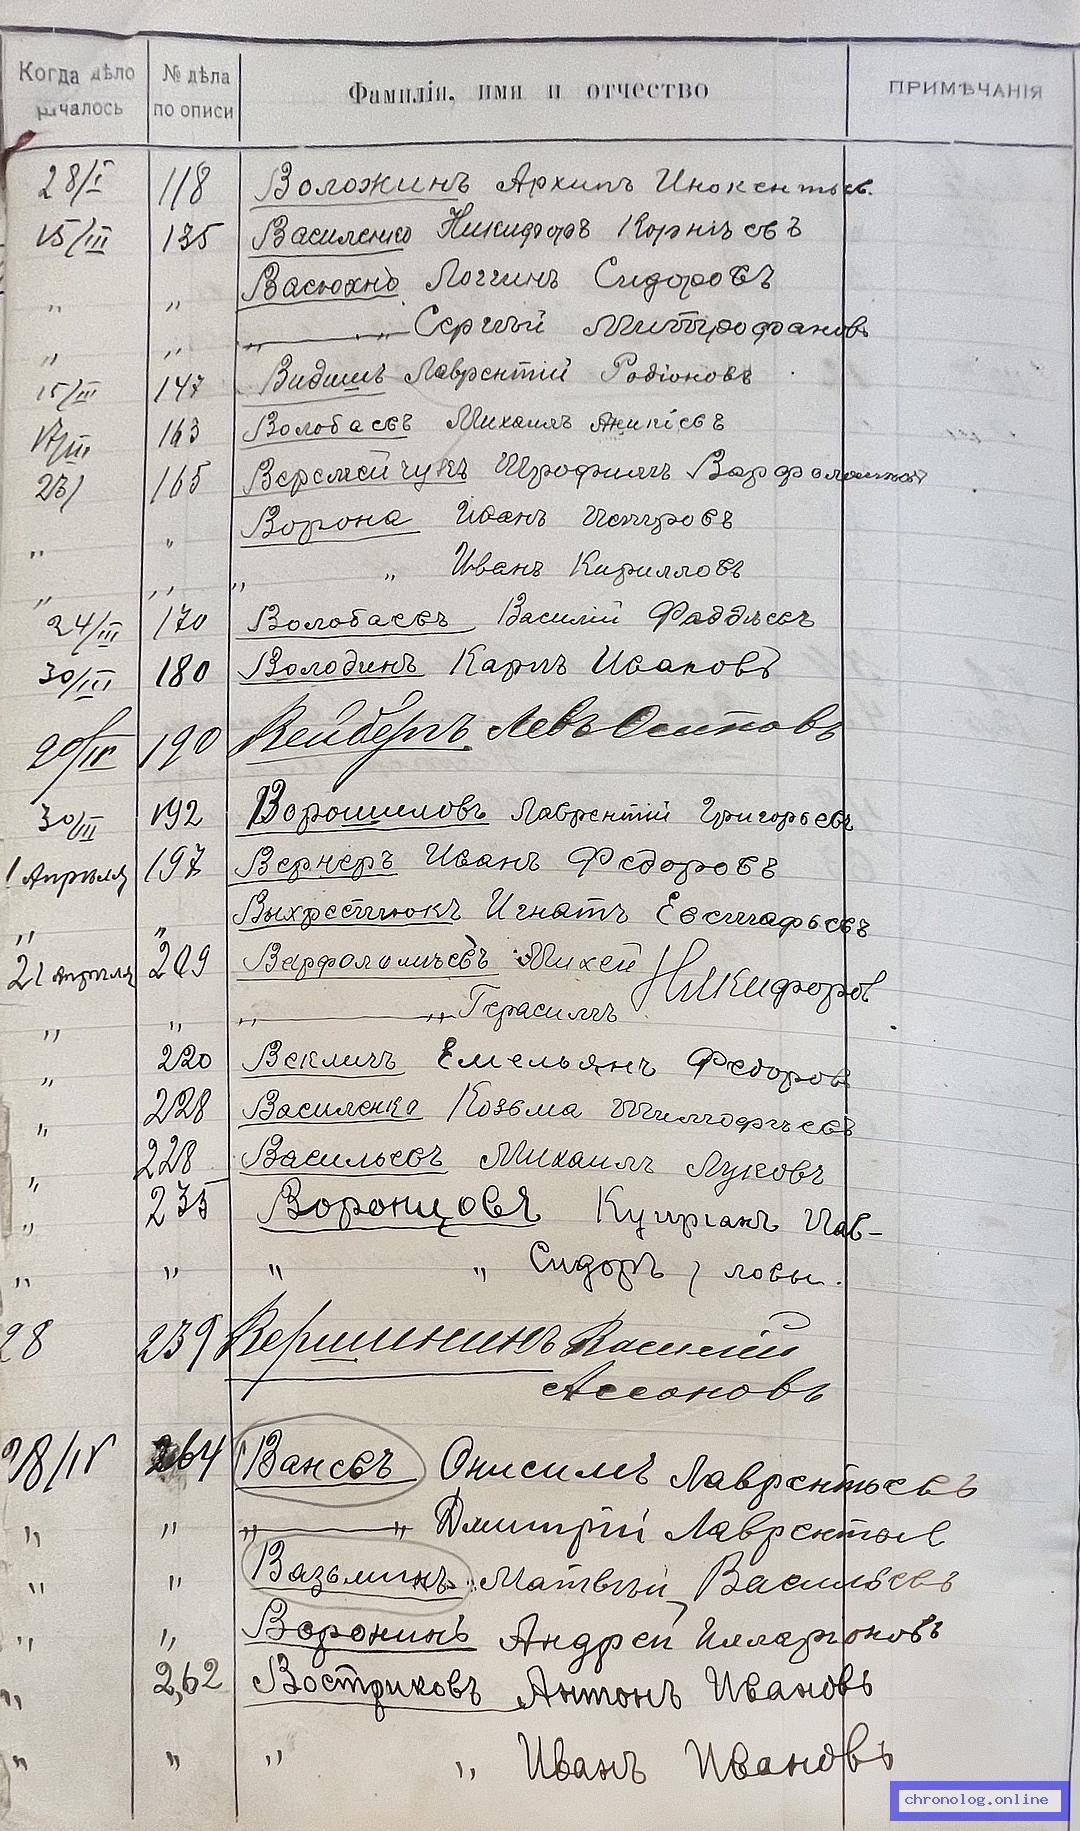 Когда дѣло началось № дѣла по описи Фамилія, имя и отчество ПРИМѢЧАНІЯ
28/I 118 Воложинъ Архипъ Инокентьев.
15/III 135 Василенко Никифоръ Корнѣевъ
„ „ Васюхно Логгинъ Сидоровъ
„ „ „ „ Сергѣй Митрофановъ
15/III 147 Видишь Лаврентій Родіоновъ
17/III 163 Волобаевъ Михаилъ Аникіевъ
23/ 165 Веремейчукъ Трофимъ
„ „ Ворона Иванъ Петровъ
„ „ „ „ Иванъ Кирилловъ
24/III 170 Волобаевъ Василій Фаддѣевъ
30/III 180 Володинъ Карпъ Ивановъ
20/IV 190 Вейбергъ Левъ Осиповъ
30/III 192 Ворошиловъ Лаврентій Григорьевъ
1 Апрѣля 197 Вернеръ Иванъ Федоровъ
„ „ Выхрестюкъ Игнатъ Евстафьевъ
21 Апрѣля 209 Варфоломѣевъ Михей Никифоров
„ „ „ „ Герасимъ
„ 220 Векличъ Емельянъ Федоровъ
„ 228 Василенко Козьма Тимофѣевъ
„ 228 Васильевъ Михаилъ Луковъ
„ 235 Воронцовъ Купріанъ Пав-
„ „ „ „ Сидоръ } ловы.
28 239 Вершининъ Василій
Ассоновъ
28/IV 264 Ваневъ Онисимъ Лаврентьевъ
„ „ „ „ Дмитрій Лаврентьев
„ „ Вазьминъ Матвѣй Васильевъ
„ „ Воронинъ Андрей Илларіоновъ
„ 262 Востриковъ Антонъ Ивановъ
„ „ „ „ Иванъ Ивановъ
chronolog.online